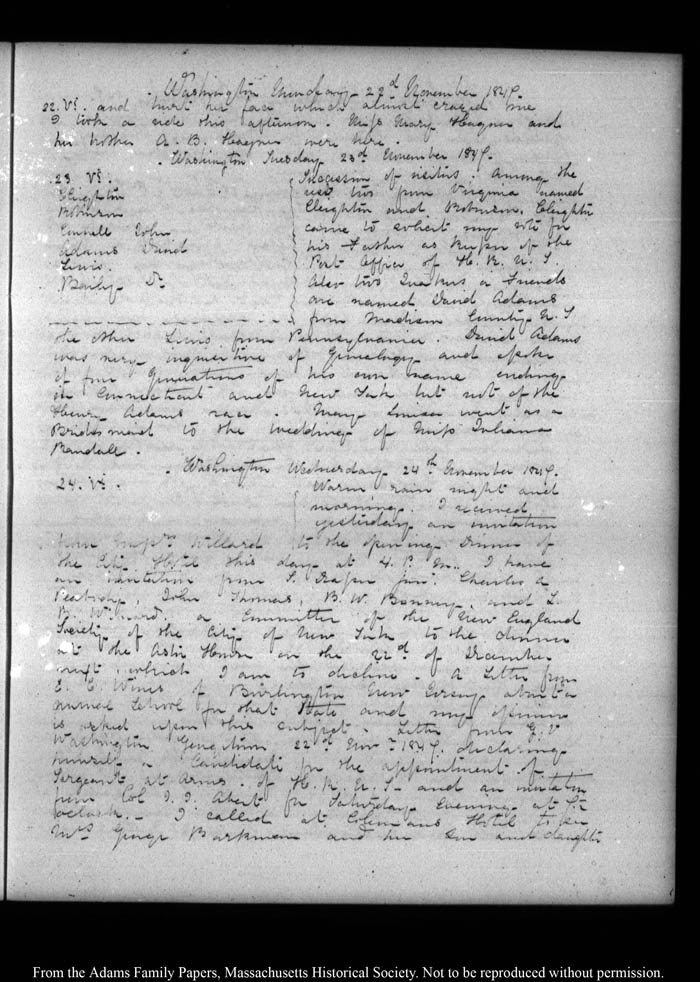 Washington Monday 22d November 1847.
22. V I. and hurt her face which almost crazed me
I took a ride this afternoon. Miss Mary Hagner and
her brother A. B. Hagner were here.
Washington, Tuesday 23d November 1847.
23 V I.
Cleighton
Robinson
Connell John
Adams David
Lewis.
Bailey Dr
Succession of visitors. Among the
rest two from Virginia named
Cleighton and Robinson. Cleighton
came to solicit my vote for
his Father as keeper of the
Post Office of H. R. U. S.
Also two Quakers or Friends
one named David Adams
from Madison County N. Y
the other Lewis from Pennsylvania. David Adams
was very inquisitive of Genealogy and spoke
of four Generations of his own name ending
in Connecticut and New York but not of the
Henry Adams race. Mary Louisa went as a
Bridesmaid to the wedding of Miss Juliana
Randall.
Washington Wednesday 24th November 1847.
24. V I.
Warm rain night and
morning. I received
yesterday an invitation
from Messrs Willard to the opening Dinner of
the City Hotel this day at 4. P. M. I have
an invitation from S. Draper junr. Charles A
Peabody, John Thomas, B. W. Bonney, and L.
B. Ward. a Committee of the New England
Society of the City of New York to the dinner
at the Astor House on the 22d of December
next, which I am to decline. A Letter from
E. C. Wines of Burlington New Jersey about a
normal School for that State and my opinion
is asked upon this subject. Letter from
Washington Georgetown 22d Novr 1847. declaring
himself a Candidate for the appointment of
Sergeant at Arms of H. R. U. S. and an invitation
from Col J. J. Abert for Saturday Evening at
oclock. I called at Coleman's Hotel to see
Mrs George Parkman and her Son and daughter
From the Adams Family Papers, Massachusetts Historical Society. Not to be reproduced without permission.